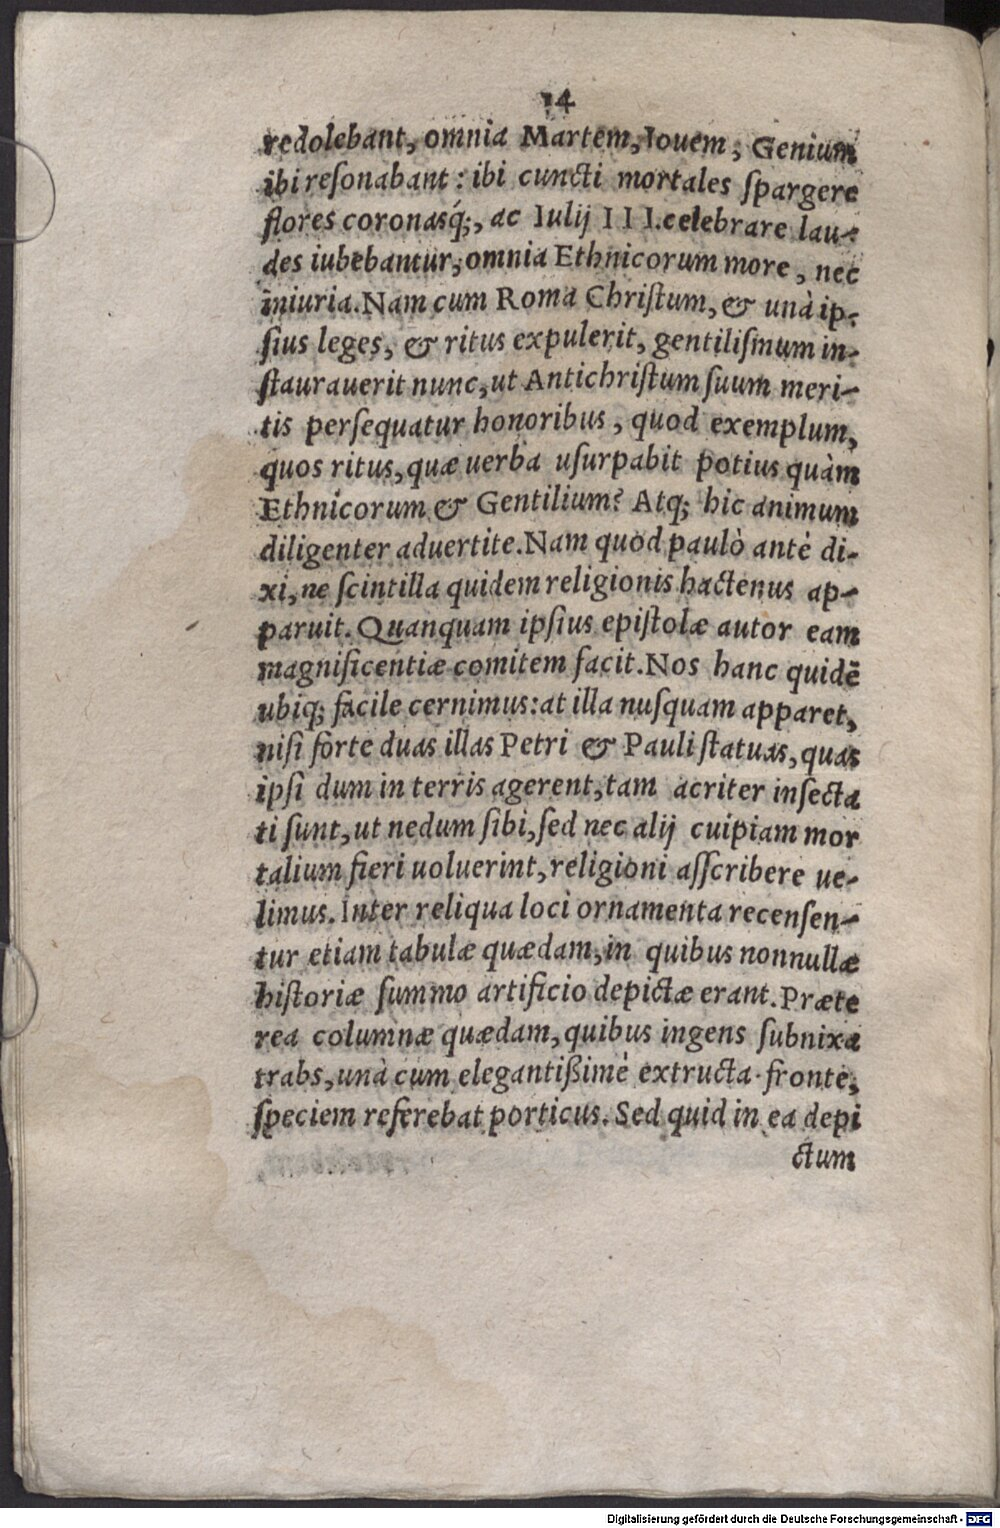 14
redolebant, omnia Martem, Iouem, Genium
ibi reſonabant: ibi cuncti mortales ſpargere
flores coronasq́;, ac Iulij III. celebrare lau-
des iubebantur, omnia Ethnicorum more, nec
iniuria. Nam cum Roma Chriſtum, & unà ip-
ſius leges, & ritus expulerit, gentiliſmum in-
ſtaurauerit nunc, ut Antichriſtum ſuum meri-
tis perſequatur honoribus, quod exemplum,
quos ritus, quæ uerba uſurpabit potius quàm
Ethnicorum & Gentilium? Atq; hic animum
diligenter aduertite. Nam quod paulò antè di-
xi, ne ſcintilla quidem religionis hactenus ap-
paruit. Quanquam ipſius epiſtolæ autor eam
magnificentiæ comitem facit. Nos hanc quidē
ubiq; facile cernimus: at illa nuſquam apparet,
niſi forte duas illas Petri & Pauli ſtatuas, quas
ipſi dum in terris agerent, tam acriter inſecta
ti ſunt, ut nedum ſibi, ſed nec alij cuipiam mor
talium fieri uoluerint, religioni aſſcribere ue-
limus. Inter reliqua loci ornamenta recenſen-
tur etiam tabulæ quædam, in quibus nonnullæ
hiſtoriæ ſummo artificio depictæ erant. Præte
rea columnæ quædam, quibus ingens ſubnixa
trabs, unà cum elegantißimè extructa fronte,
ſpeciem referebat porticus. Sed quid in ea depi
ctum
Digitalisierung gefördert durch die Deutsche Forschungsgemeinschaft - DFG